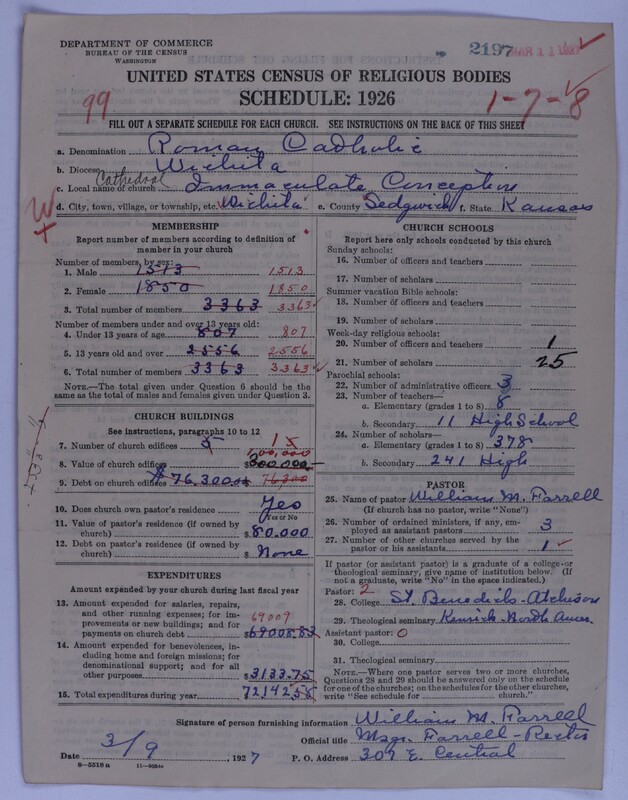 DEPARTMENT OF COMMERCE
BUREAU OF THE CENSUS
WASHINGTON
2197 MAR 11 1927
UNITED STATES CENSUS OF RELIGIOUS BODIES
SCHEDULE: 1926
99
1-7-8
FILL OUT A SEPARATE SCHEDULE FOR EACH CHURCH. SEE INSTRUCTIONS ON THE BACK OF THIS SHEET
a. Denomination Roman Catholic
b. Diocese Wichita
Cathedral
c. Local name of church Immaculate Conception
d. City, town, village, or township, etc. Wichita e. County Sedgwick f. State Kansas
MEMBERSHIP
Report number of members according to definition of
member in your church
Number of members, by sex:
1. Male 1513 1513
2. Female 1850 1850
3. Total number of members 3363 3363
Number of members under and over 13 years old:
4. Under 13 years of age 807 807
5. 13 years old and over 2556 2556
6. Total number of members 3363 3363
NOTE.—The total given under Question 6 should be the
same as the total of males and females given under Question 3.
CHURCH BUILDINGS
See instructions, paragraphs 10 to 12
7. Number of church edifices 5 1
8. Value of church edifices
9. Debt on church edifices $76,300 76,300
10. Does church own pastor's residence Yes
Yes or No
11. Value of pastor's residence (if owned by
church) $80,000
12. Debt on pastor's residence (if owned by
church) $None
EXPENDITURES
Amount expended by your church during last fiscal year
13. Amount expended for salaries, repairs,
and other running expenses; for im-
provements or new buildings; and for
payments on church debt 69009 $69008.83
14. Amount expended for benevolences, in-
cluding home and foreign missions; for
denominational support; and for all
other purposes $3133.75
15. Total expenditures during year 72142.58
CHURCH SCHOOLS
Report here only schools conducted by this church
Sunday schools:
16. Number of officers and teachers
17. Number of scholars
Summer vacation Bible schools:
18. Number of officers and teachers
19. Number of scholars
Week-day religious schools:
20. Number of officers and teachers 1
21. Number of scholars 25
Parochial schools:
22. Number of administrative officers 3
23. Number of teachers—
a. Elementary (grades 1 to 8) 8
b. Secondary 11 High School
24. Number of scholars—
a. Elementary (grades 1 to 8) 378
b. Secondary 241 High
PASTOR
25. Name of pastor William M. Farrell
(If church has no pastor, write "None")
26. Number of ordained ministers, if any, em-
ployed as assistant pastors 3
27. Number of other churches served by the
pastor or his assistants 1
If pastor (or assistant pastor) is a graduate of a college or
theological seminary, give name of institution below. (If
not a graduate, write "No" in the space indicated.)
Pastor: 2
28. College St. Benedicts-Atchison
29. Theological seminary Kenrick-North Amer.
Assistant pastor: 0
30. College
31. Theological seminary
NOTE.—Where one pastor serves two or more churches,
Questions 28 and 29 should be answered only on the schedule
for one of the churches; on the schedules for the other churches,
write "See schedule for church."
Signature of person furnishing information William M. Farrell
Official title Msgr. Farrell-Rector
Date 3/9, 1927 P. O. Address 307 E. Central
8—5518a 11—9584a